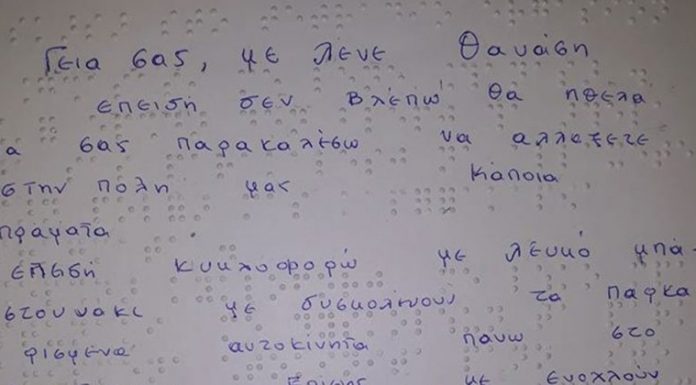 Γεια σας, με λένε Θανάση
επειδη δεν βλέπω θα ηθελα
α σας παρακαλέσω να αλλεξετε
στην πολη μας κάποια
πράγματα
επειδή κυκλοφορώ με λευκό μπα-
στουνακι με δυσκολευουν τα παρκα
ρισμενα αυτοκίνητα πανω στο
Επίσης με ενοχλούν